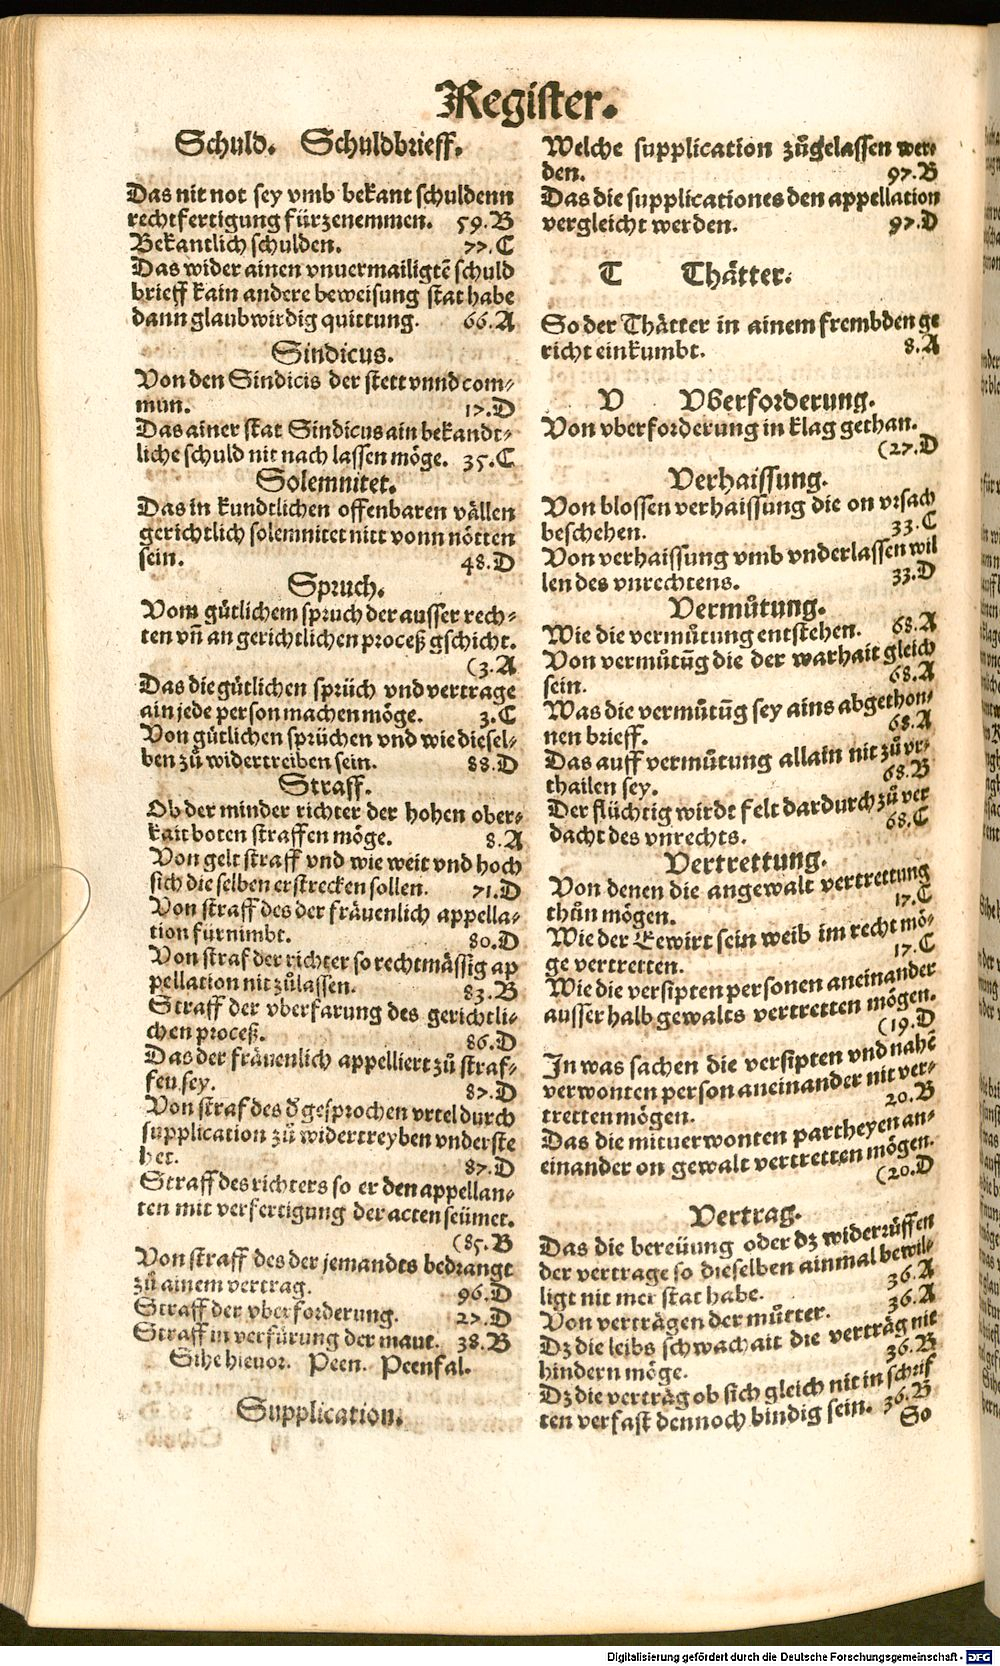 Register.
Schuld. Schuldbrieff.
Das nit not sey vmb bekant schuldenn
rechtfertigung fürzenemmen. 59.B
Bekantlich schulden. 77.C
Das wider ainen vnuermailigtẽ schuld
brieff kain andere beweisung stat habe
dann glaubwirdig quittung. 66.A
Sindicus.
Von den Sindicis der stett vnnd com⸗
mun. 17.D
Das ainer stat Sindicus ain bekandt⸗
liche schuld nit nach lassen möge. 35.C
Solemnitet.
Das in kundtlichen offenbaren vällen
gerichtlich solemnitet nitt vonn nötten
sein. 48.D
Spruch.
Vom gütlichem spruch der ausser rech⸗
ten vñ an gerichtlichen proceß gschicht.
(3.A
Das die gütlichen sprüch vnd vertrage
ain jede person machen möge. 3.C
Von gütlichen sprüchen vnd wie diesel⸗
ben zů widertreiben sein. 88.D
Straff.
Ob der minder richter der hohen ober⸗
kait boten straffen möge. 8.A
Von gelt straff vnd wie weit vnd hoch
sich die selben erstrecken sollen. 71.D
Von straff des der fräuenlich appella⸗
tion fürnimbt. 80.D
Von straf der richter so rechtmässig ap
pellation nit zůlassen. 83.B
Straff der vberfarung des gerichtli⸗
chen proceß. 86.D
Das der fräuenlich appelliert zů straf⸗
fen sey. 87.D
Von straf des d̕ gesprochen vrtel durch
supplication zů widertreyben vnderste
het. 87.D
Straff des richters so er den appellan⸗
ten mit verfertigung der acten seümet.
(85.B
Von straff des der jemandts bedrangt
zů ainem vertrag. 96.D
Straff der vberforderung. 27.D
Straff in verfürung der maut. 38.B
Sihe hieuor. Peen. Peenfal.
Supplication.
Welche supplication zůgelassen wer⸗
den. 97.B
Das die supplicationes den appellation
vergleicht werden. 97.D
T Thätter.
So der Thätter in ainem frembden ge
richt einkumbt. 8.A
V Vberforderung.
Von vberforderung in klag gethan.
(27.D
Verhaissung.
Von blossen verhaissung die on vrsach
beschehen. 33.C
Von verhaissung vmb vnderlassen wil
len des vnrechtens. 33.D
Vermůtung.
Wie die vermůtung entstehen. 68.A
Von vermůtũg die der warhait gleich
sein. 68.A
Was die vermůtũg sey ains abgethon⸗
nen brieff. 68.A
Das auff vermůtung allain nit zů vr⸗
thailen sey. 68.B
Der flüchtig wirdt felt dardurch zů ver
dacht des vnrechts. 68.C
Vertrettung.
Von denen die angewalt vertrettung
thůn mögen. 17.C
Wie der Eewirt sein weib im recht mö⸗
ge vertretten. 17.C
Wie die versipten personen aneinander
ausser halb gewalts vertretten mögen.
(19.D
In was sachen die versipten vnd nahẽ
verwonten person aneinander nit ver⸗
tretten mögen. 20.B
Das die mituerwonten partheyen an⸗
einander on gewalt vertretten mögen.
(20.D
Vertrag.
Das die bereüung oder dz widerrüffen
der vertrage so dieselben ainmal bewil⸗
ligt nit mer stat habe. 36.A
Von verträgen der můtter. 36.A
Dz die leibs schwachait die verträg nit
hindern möge. 36.B
Dz die verträg ob sich gleich nit in schrif
ten verfast dennoch bindig sein. 36.B
So
Digitalisierung gefördert durch die Deutsche Forschungsgemeinschaft - DFG